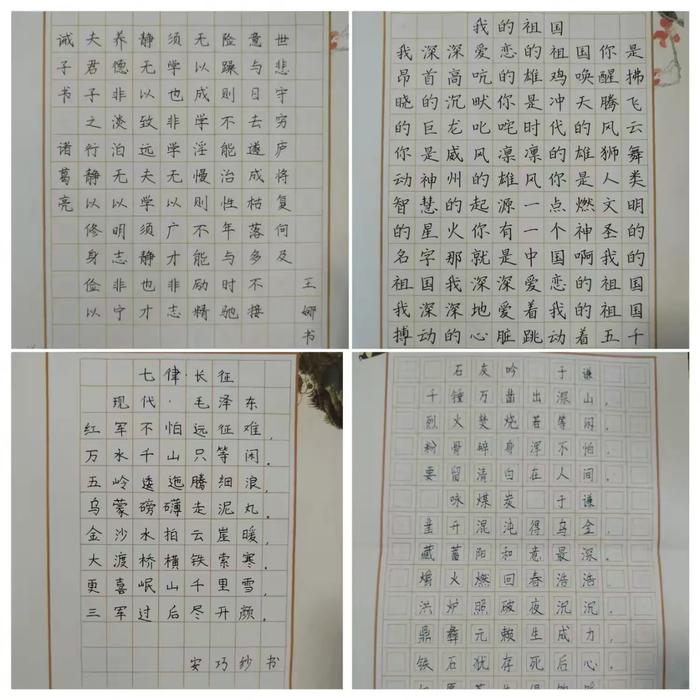 诫子书 诸葛亮
夫君子之行静以修身俭以
养德非淡泊无以明志非宁
静无以致远夫学须静也才
须学也非学无以广才非志
无以成学淫慢则不能励精
险躁则不能治性年与时驰
意与日去遂成枯落多不接
世悲守穷庐将复何及
王娜书
我的祖国
我深深爱恋的祖国你是
昂首高吭的雄鸡唤醒拂
晓的沉默你是冲天腾飞
的巨龙叱咤时代的风云
你是威风凛凛的雄狮舞
动神州的雄风你是人类
智慧的起源一点燃文明
的星火你有一个神圣的
名字那就是中国啊我的
祖国我深深爱恋的祖国
我深深地爱着我的祖国
搏动的心脏跳动着五千
七律·长征
现代·毛泽东
红军不怕远征难，
万水千山只等闲。
五岭逶迤腾细浪，
乌蒙磅礴走泥丸。
金沙水拍云崖暖，
大渡桥横铁索寒。
更喜岷山千里雪，
三军过后尽开颜。
安巧纱书
石灰吟 于谦
千锤万凿出深山，
烈火焚烧若等闲。
粉骨碎身浑不怕，
要留清白在人间。
咏煤炭 于谦
凿开混沌得乌金，
藏蓄阳和意最深。
爝火燃回春浩浩，
洪炉照破夜沉沉。
鼎彝元赖生成力，
铁石犹存死后心。